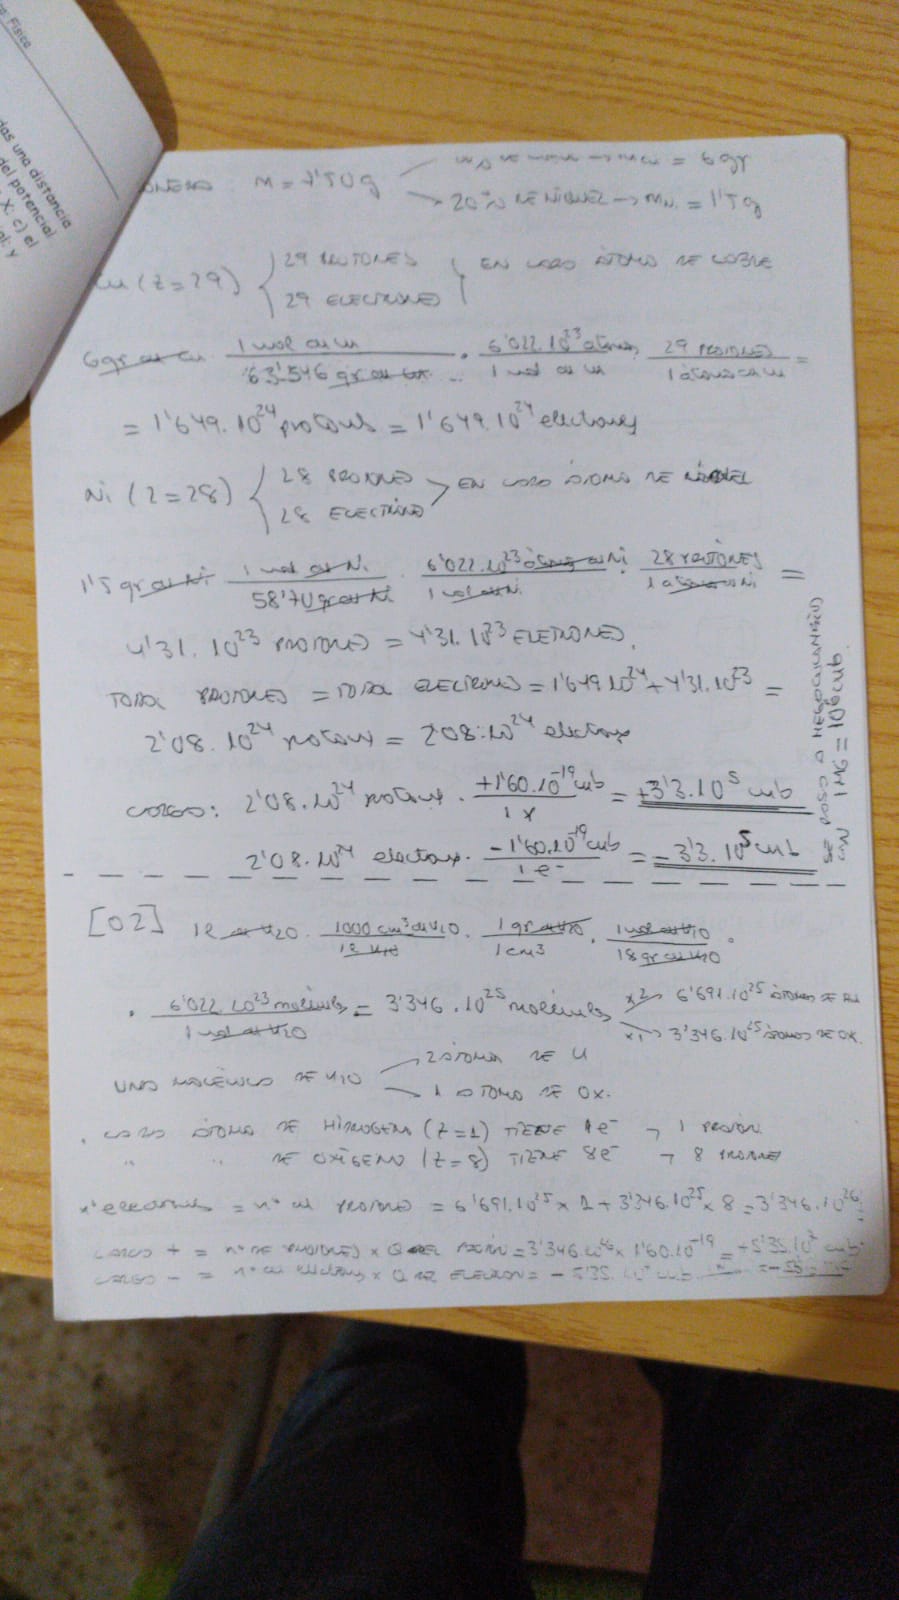 Física
das una distancia
del potencial
X; c) el
al; y
M = 7'50g → mcu = 6gr
→ 20% DE NIQUEL → mNi = 1'5g
Cu (Z=29) { 29 PROTONES } EN CADA ÁTOMO DE COBRE
29 ELECTRONES
6gr de Cu · 1 mol de Cu / 63'546 gr de Cu · 6'022·10^23 átomos / 1 mol de Cu · 29 PROTONES / 1 átomo de Cu =
= 1'649·10^24 protones = 1'649·10^24 electrones
Ni (Z=28) { 28 PROTONES } EN CADA ÁTOMO DE NÍQUEL
28 ELECTRONES
1'5 gr de Ni · 1 mol de Ni / 58'70 gr de Ni · 6'022·10^23 átomos de Ni / 1 mol de Ni · 28 PROTONES / 1 átomo de Ni =
4'31·10^23 PROTONES = 4'31·10^23 ELETRONES.
TOTAL PROTONES = TOTAL ELECTRONES = 1'649·10^24 + 4'31·10^23 =
2'08·10^24 protones = 2'08·10^24 electrones
CARGA: 2'08·10^24 protones · +1'60·10^-19 culb / 1 = +3'3·10^5 culb
2'08·10^24 electrones · -1'60·10^-19 culb / 1 e- = -3'3·10^5 culb
SE PASA A MEGACULOMBIOS
1MC = 10^6 culb
[02] 1l de H2O · 1000 cm3 de H2O / 1l H2O · 1 gr de H2O / 1 cm3 · 1 mol de H2O / 18 gr de H2O ·
· 6'022·10^23 moléculas / 1 mol de H2O = 3'346·10^25 moléculas x2→ 6'691·10^25 ÁTOMOS DE H
x1→ 3'346·10^25 ÁTOMOS DE OX.
UNA MOLÉCULA DE H2O → 2 ÁTOMOS DE H
→ 1 ÁTOMO DE OX.
· CADA ÁTOMO DE HIDROGENO (Z=1) TIENE 1e- → 1 PROTÓN
" " DE OXÍGENO (Z=8) TIENE 8e- → 8 PROTONES
nº electrones = nº de PROTONES = 6'691·10^25 x 1 + 3'346·10^25 x 8 = 3'346·10^26
CARGA + = nº DE PROTONES x Q DEL PROTÓN = 3'346·10^26 x 1'60·10^-19 = +5'35·10^7 culb.
CARGA - = nº de electrones x Q DEL ELECTRON = -5'35·10^7 culb